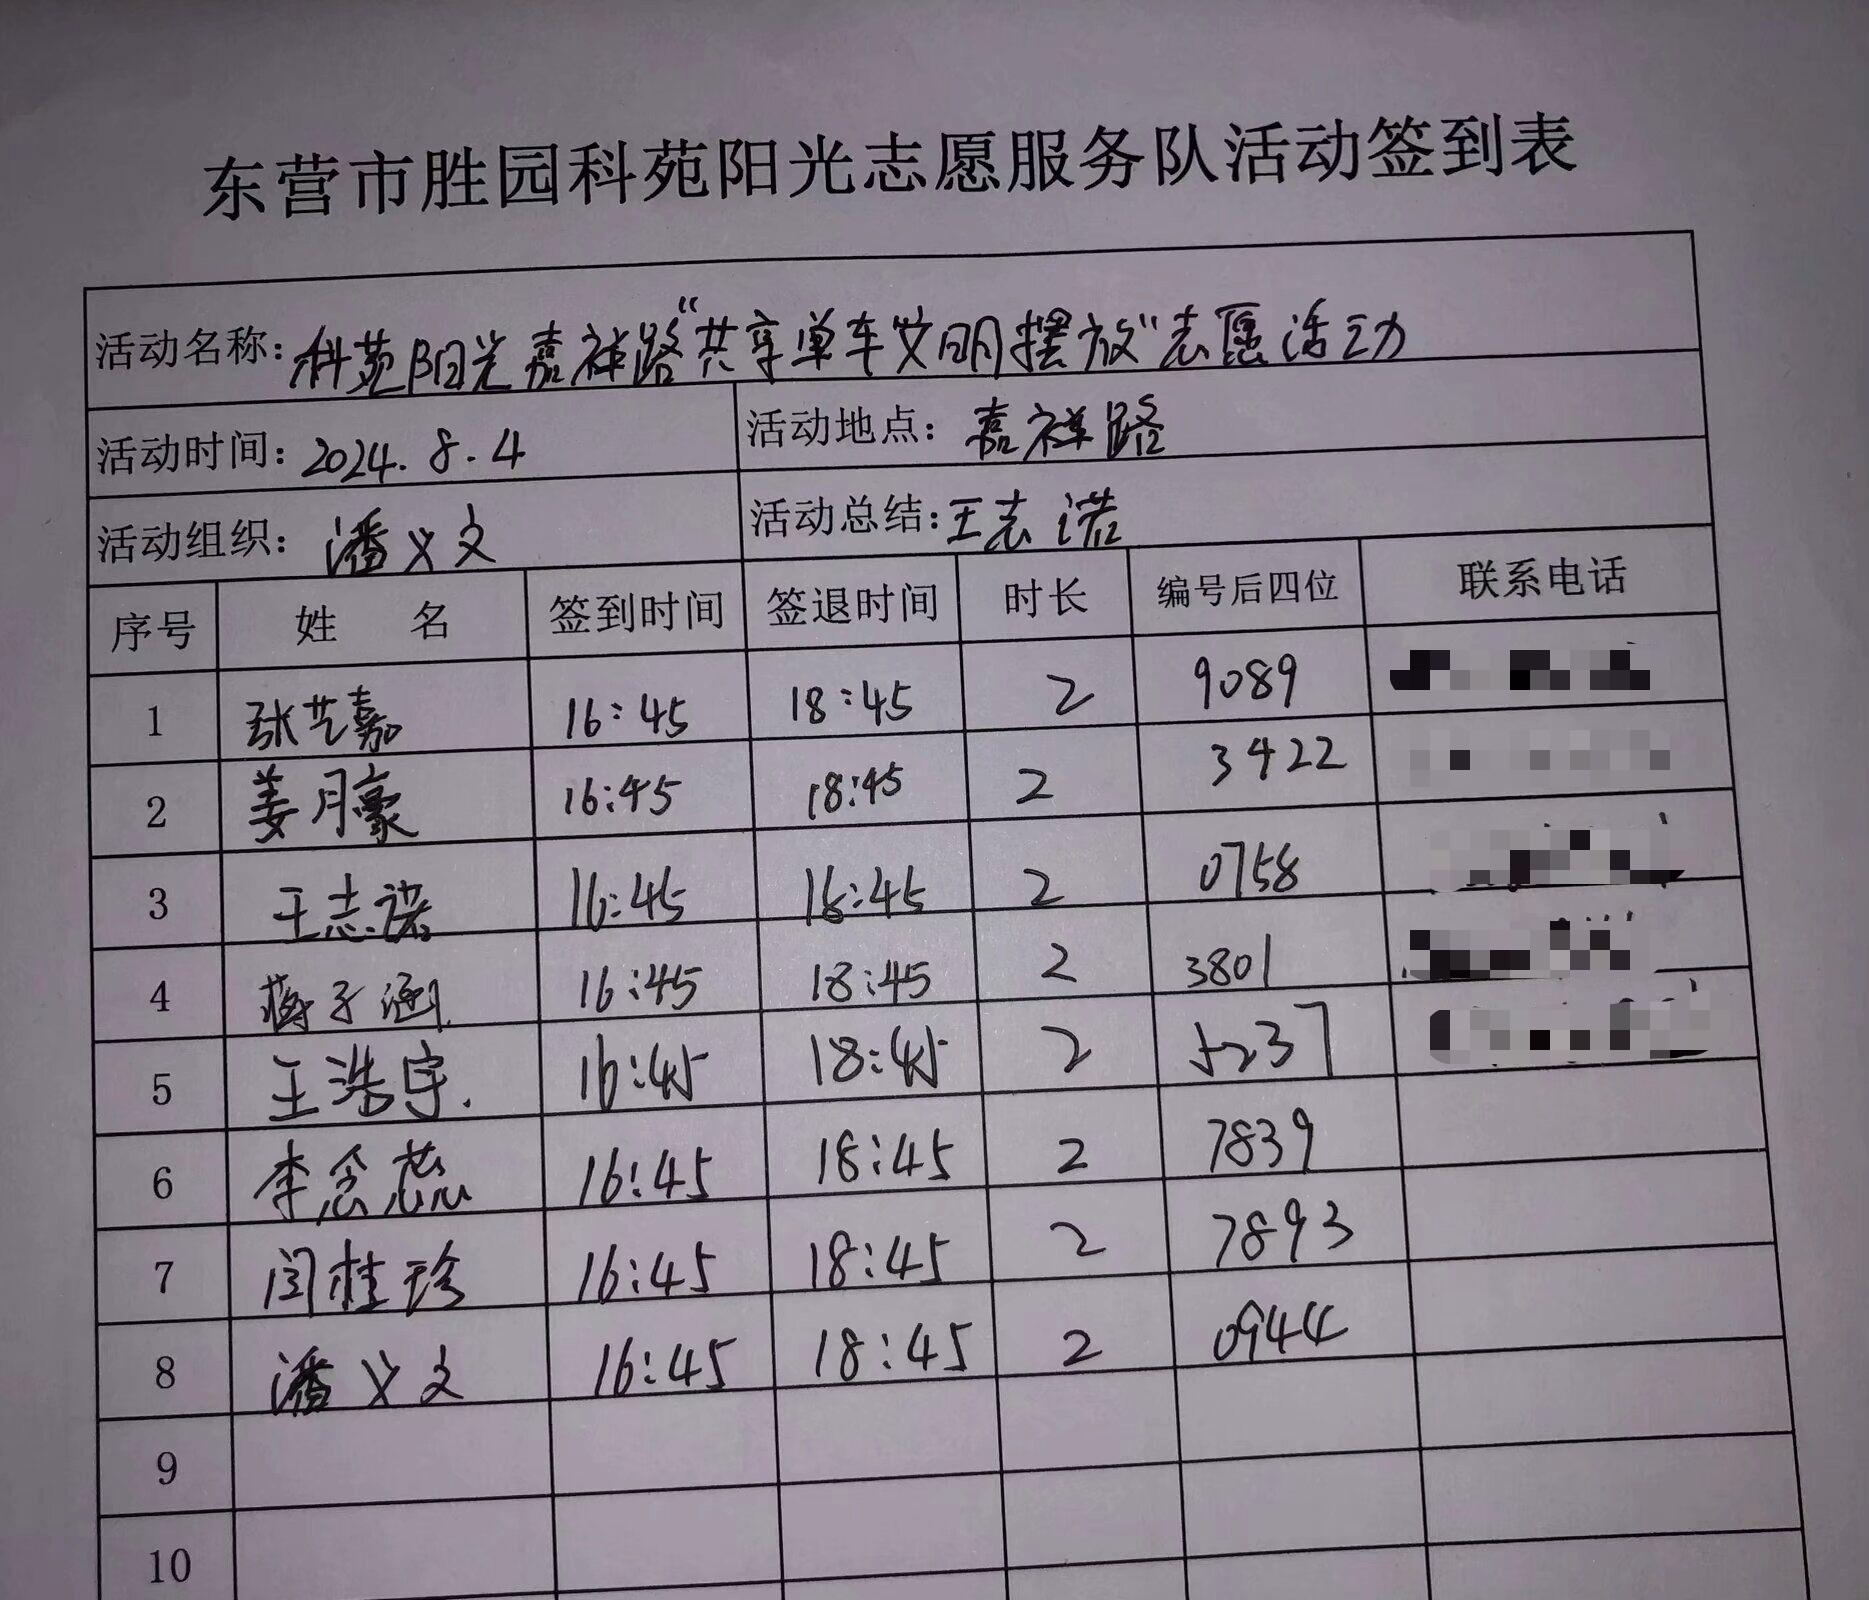 东营市胜园科苑阳光志愿服务队活动签到表
活动名称：科苑阳光嘉祥路“共享单车文明摆放”志愿活动
活动时间：2024.8.4 活动地点：嘉祥路
活动组织：潘义文 活动总结：王志诺
序号 姓名 签到时间 签退时间 时长 编号后四位 联系电话
1 张艺嘉 16:45 18:45 2 9089
2 姜月豪 16:45 18:45 2 3422
3 王志诺 16:45 18:45 2 0758
4 蒋子涵 16:45 18:45 2 3801
5 王浩宇. 16:45 18:45 2 5237
6 李念蕊 16:45 18:45 2 7839
7 闫桂珍 16:45 18:45 2 7893
8 潘义文 16:45 18:45 2 0944
9
10